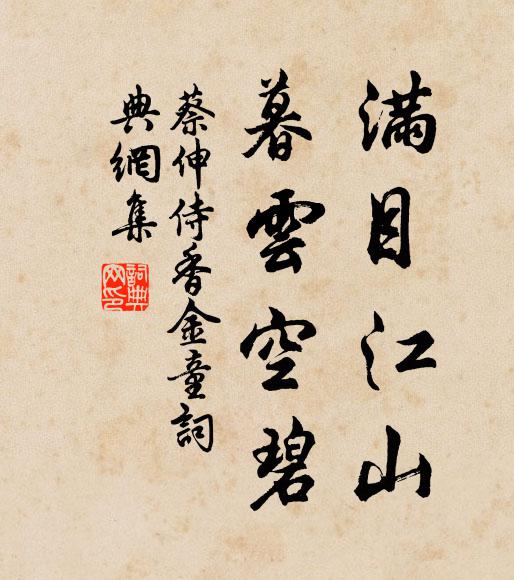 滿目江山
暮雲空碧
蔡伸侍香金童詞
典網集
詞典網印